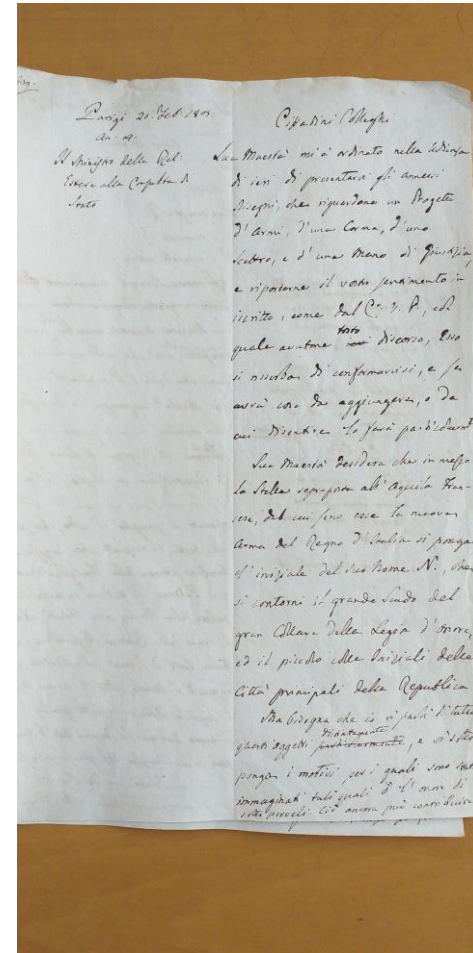 Parigi 21. Feb. 1805.
an. 4.
Il Ministro delle Rel.
Estere alla Consulta di
Stato
Cittadini Colleghi
Sua Maestà mi à ordinato nella udienza
di ieri di presentarvi gli annessi
disegni, che riguardano un Progetto
d'Armi, d'una Corona, d'uno
Scettro, e d'una Mano di Giustizia,
e riportarne il vostro sentimento in
iscritto, come dal C.
quale avutone tosto discorso, Esso
si riserba di conformarvisi, e se
avrà cosa da aggiungere, o da
cui dissentire lo farà particolarmente
Sua Maestà desidera che in mezzo
la Stella sovrapposta all'Aquila Fran-
cese, dal cui seno esce la nuova
Arma del Regno d'Italia si ponga
l'iniziale del suo Nome N., che
si contorni il grande Scudo del
gran Collare della Legion d'onore,
ed il piccolo colle Iniziali delle
Città principali della Republica
Ma bisogna che io vi parli di tutti
questi oggetti distintamente, e vi sotto
ponga i motivi per i quali sono stati
immaginati tali quali ò l'onor di
Ciò ancora più contribuirà